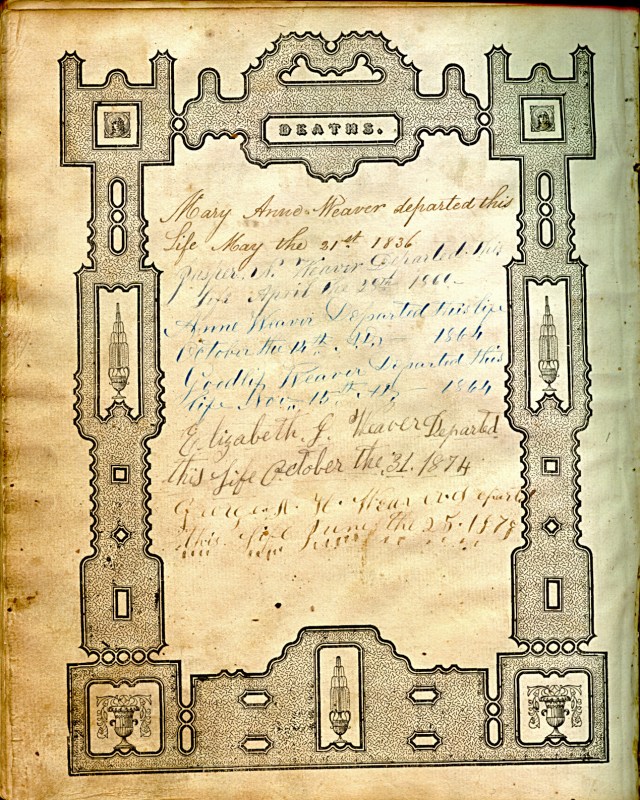 DEATHS.
Mary Anne Weaver departed this
Life May the 21st 1836
Jasper N. Weaver Departed this
Life April the 29th
Anne Weaver Departed this life
October the 14th 1864
Goodlip Weaver Departed this
life Nov. 15th 1864
Elizabeth J. Weaver Departed
this Life October the 31. 1874
George Weaver departed
this Life June the 25. 1878